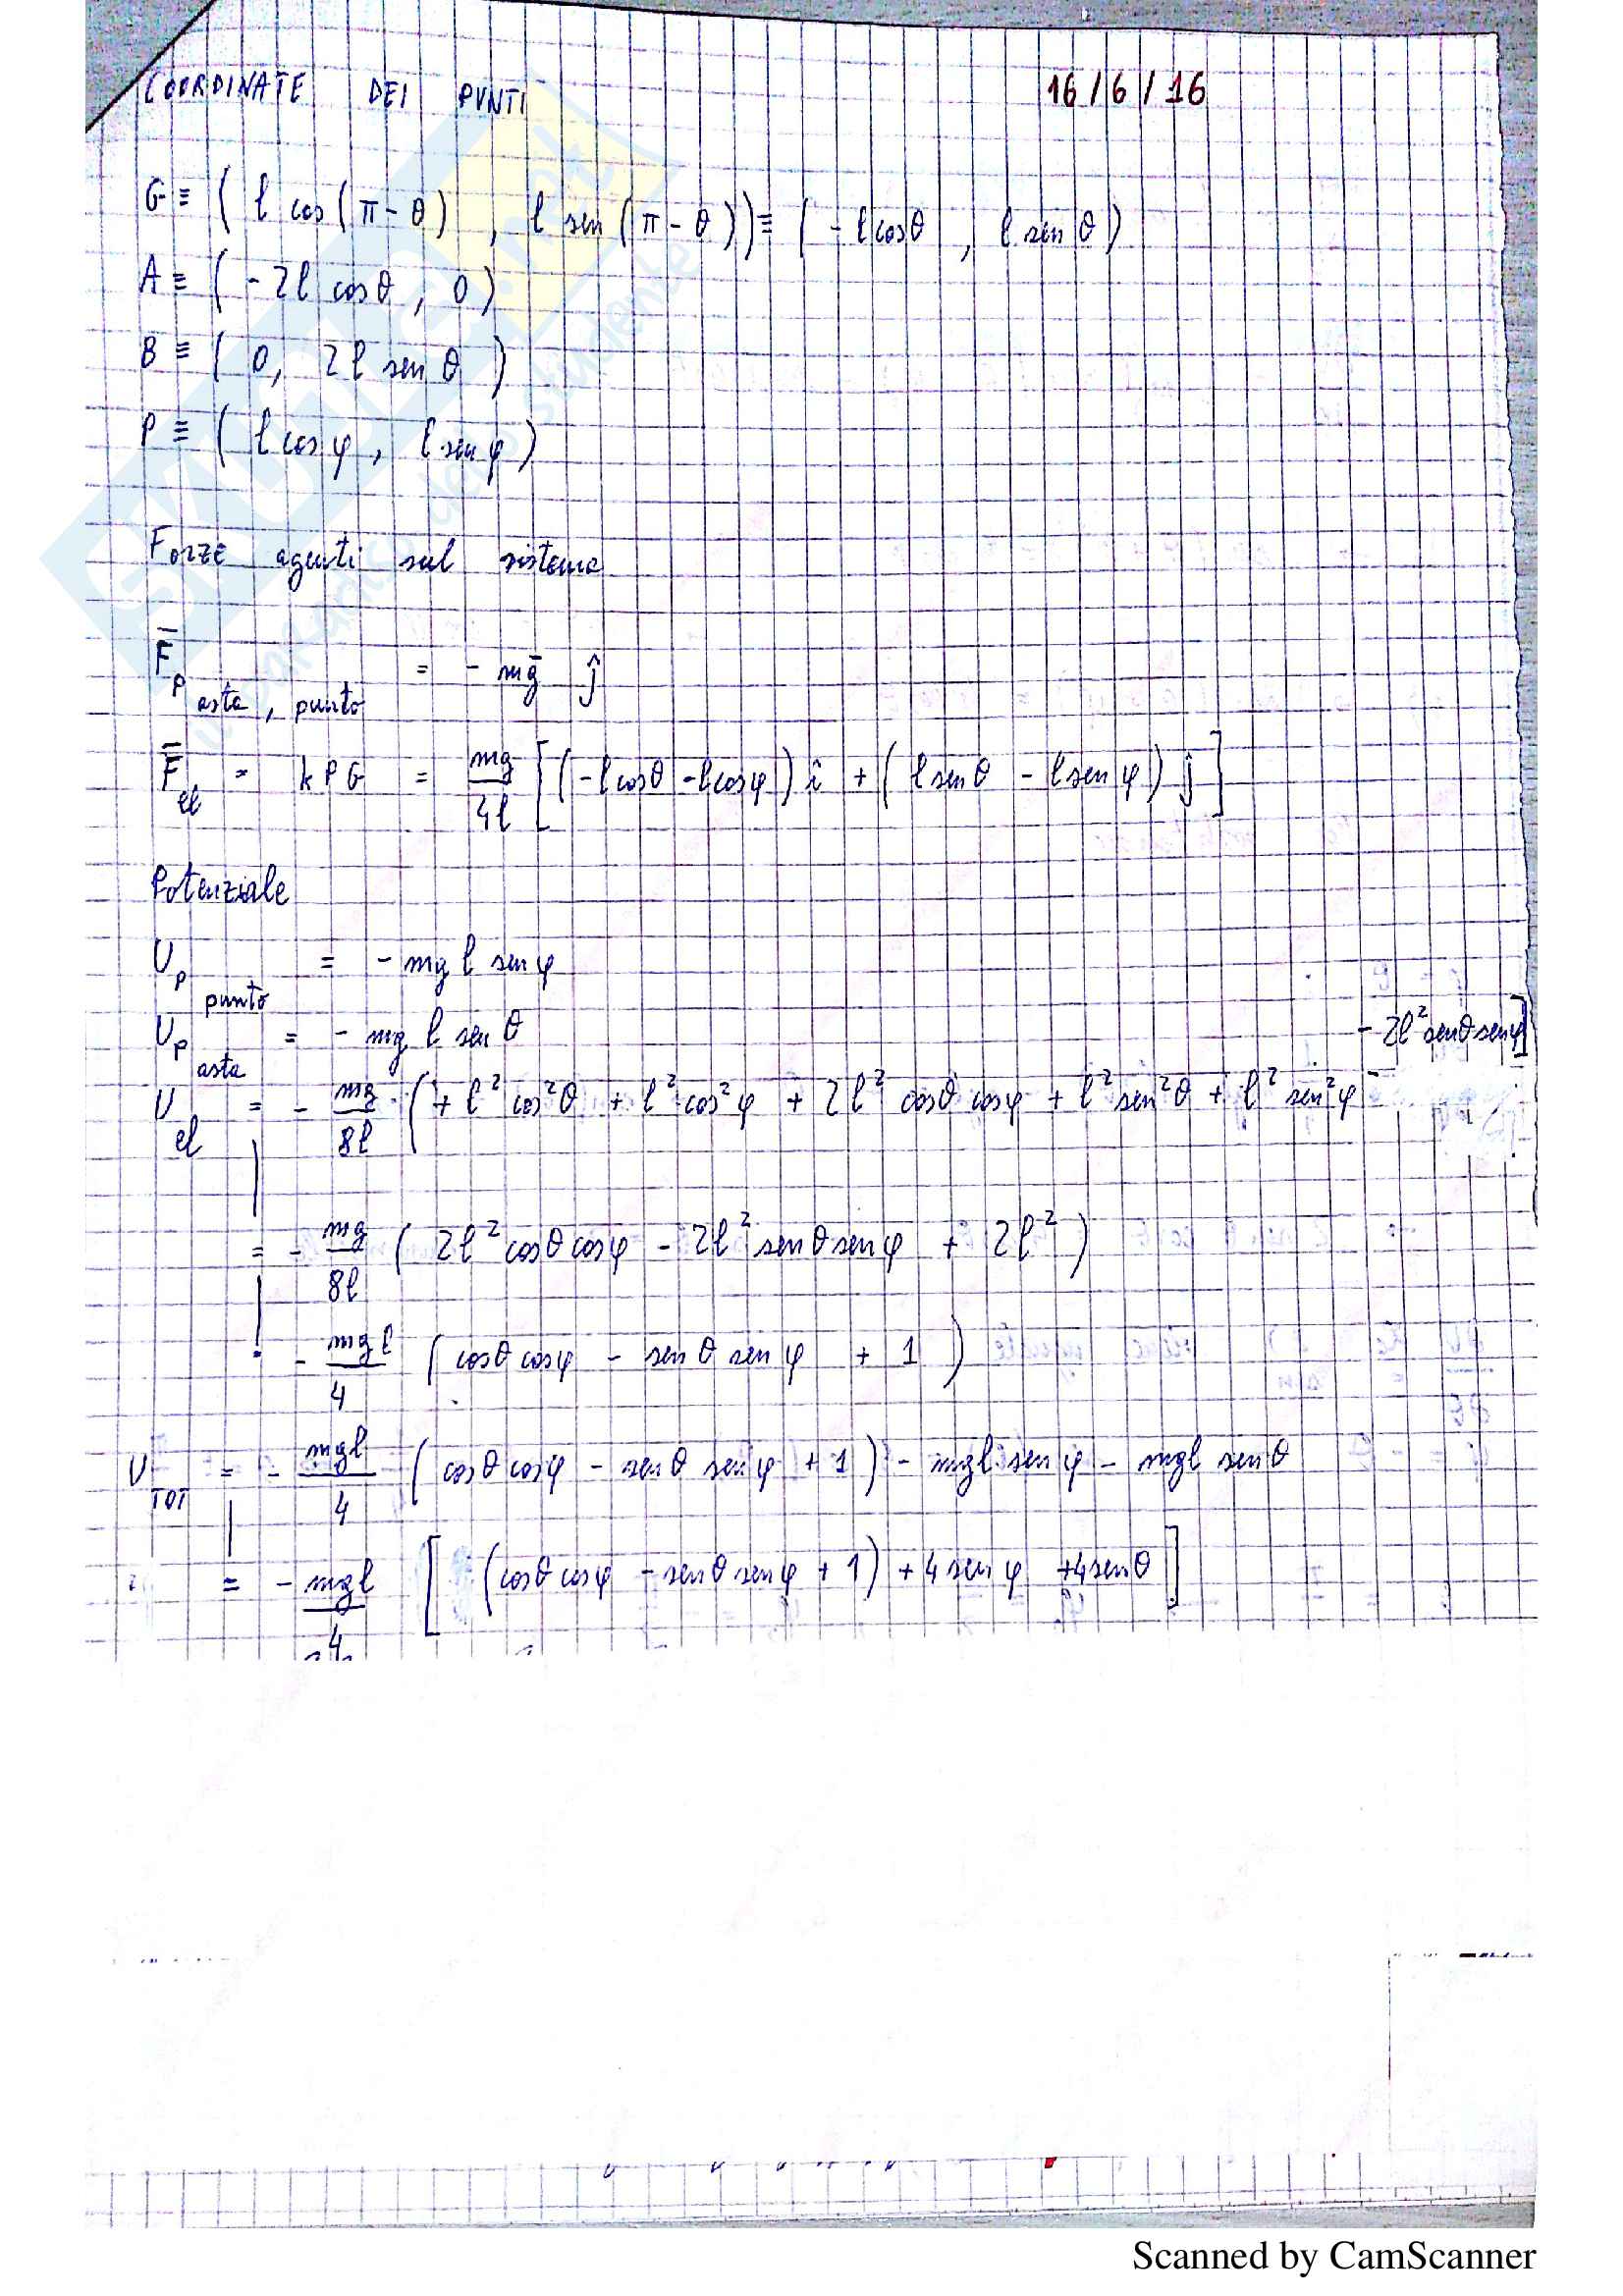 COORDINATE DEI PUNTI 16/6/16
G ≡ ( l cos(π-θ) , l sen(π-θ)) ≡ ( - l cosθ , l sen θ)
A ≡ ( - 2l cosθ , 0 )
B ≡ ( 0, 2l sen θ )
P ≡ ( l cos φ , l sen φ )
Forze agenti sul sistema
F̄p asta, punto = - mg ĵ
F̄el = k PG = mg/4l [(-l cosθ - l cosφ) î + ( l senθ - l sen φ) ĵ ]
Potenziale
Up punto = - mg l sen φ
Up asta = - mg l sen θ
Uel = - mg/8l ( + l² cos²θ + l² cos²φ + 2l² cosθ cosφ + l² sin²θ + l² sin²φ - 2l² senθ senφ]
= - mg/8l ( 2l² cosθ cosφ - 2l² senθ senφ + 2l² )
= - mgl/4 ( cosθ cosφ - sen θ sen φ + 1 )
UTOT = - mgl/4 ( cosθ cosφ - senθ sen φ + 1) - mgl sen φ - mgl sen θ
= - mgl/4 [ (cosθ cosφ - senθ sen φ + 1) + 4 sen φ + 4 senθ ]
Scanned by CamScanner